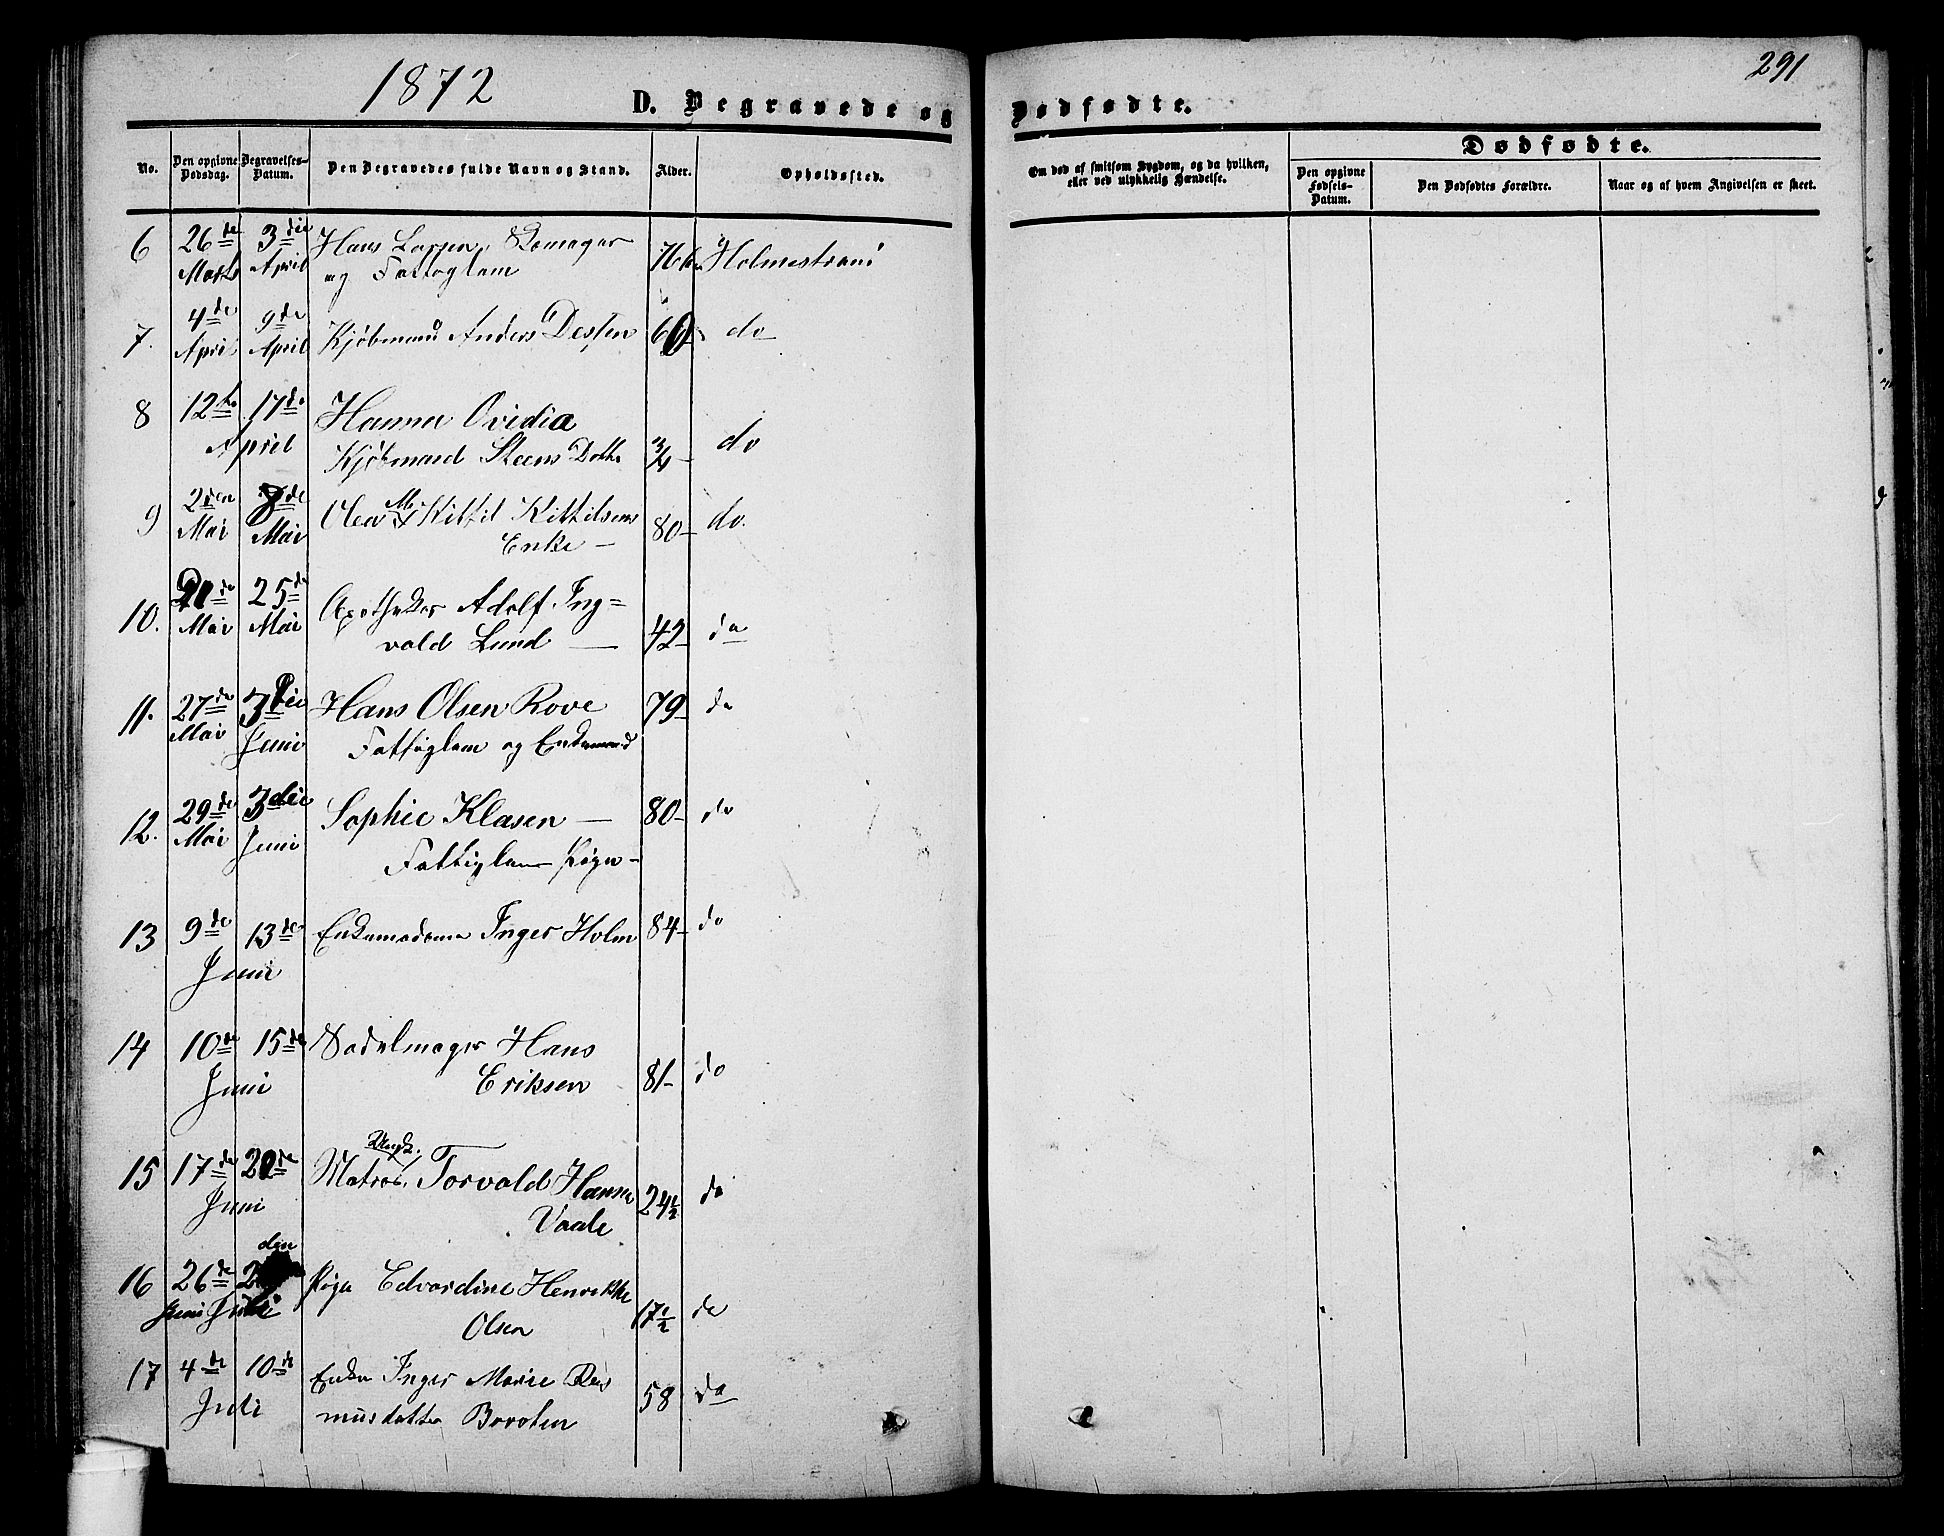 1872
291
D. Begravede og Dødfødte.
No.
Den opgivne Dødsdag.
Begravelses-Datum.
Den Begravedes fulde Navn og Stand.
Alder.
Opholdssted.
Om død af smitsom Sygdom, og da hvilken, eller ved ulykkelig Hændelse.
Dødfødte.
Den opgivne Fødsels-Datum.
Den Dødfødtes Forældre.
Naar og af hvem Angivelsen er skeet.
6 26de 3die Hans Larsen, 76 Holmestrand
Marts April og Fattiglem
7. 4de 9de Kjøbmand Anders 60 do
April April
8 12te 17de Hanna Ovidia
April Kjøbmand Steens Dotter 3/4 do
9 2den 8de Olea M. Kittil Kittilsens 80 do.
Mai Mai Enke
10. 21de 25de Apotheker Adolf Ing=
Mai Mai vald Lund 42 do
11. 27de Hans Olsen Rove 79 do
Mai Juni Fattiglem og Enkemand
12. 29de 3die Sophie Klasen 80 do
Mai Juni Fattiglem Pige
13 9de 13de Enkemadame Inger Holm 84 do
Juni
14 10de 15de Sadelmager Hans
Juni Eriksen 81 do
Ungk.
15 17de Matros, Torvald Hansen 24½ do
Juni Vaale
den
16 26de Pige Edvardine Henrikke
Juni Juli Olsen 17½ do
17 4de 10de Enke Inger Marie Ras
Juli musdatter 58 do